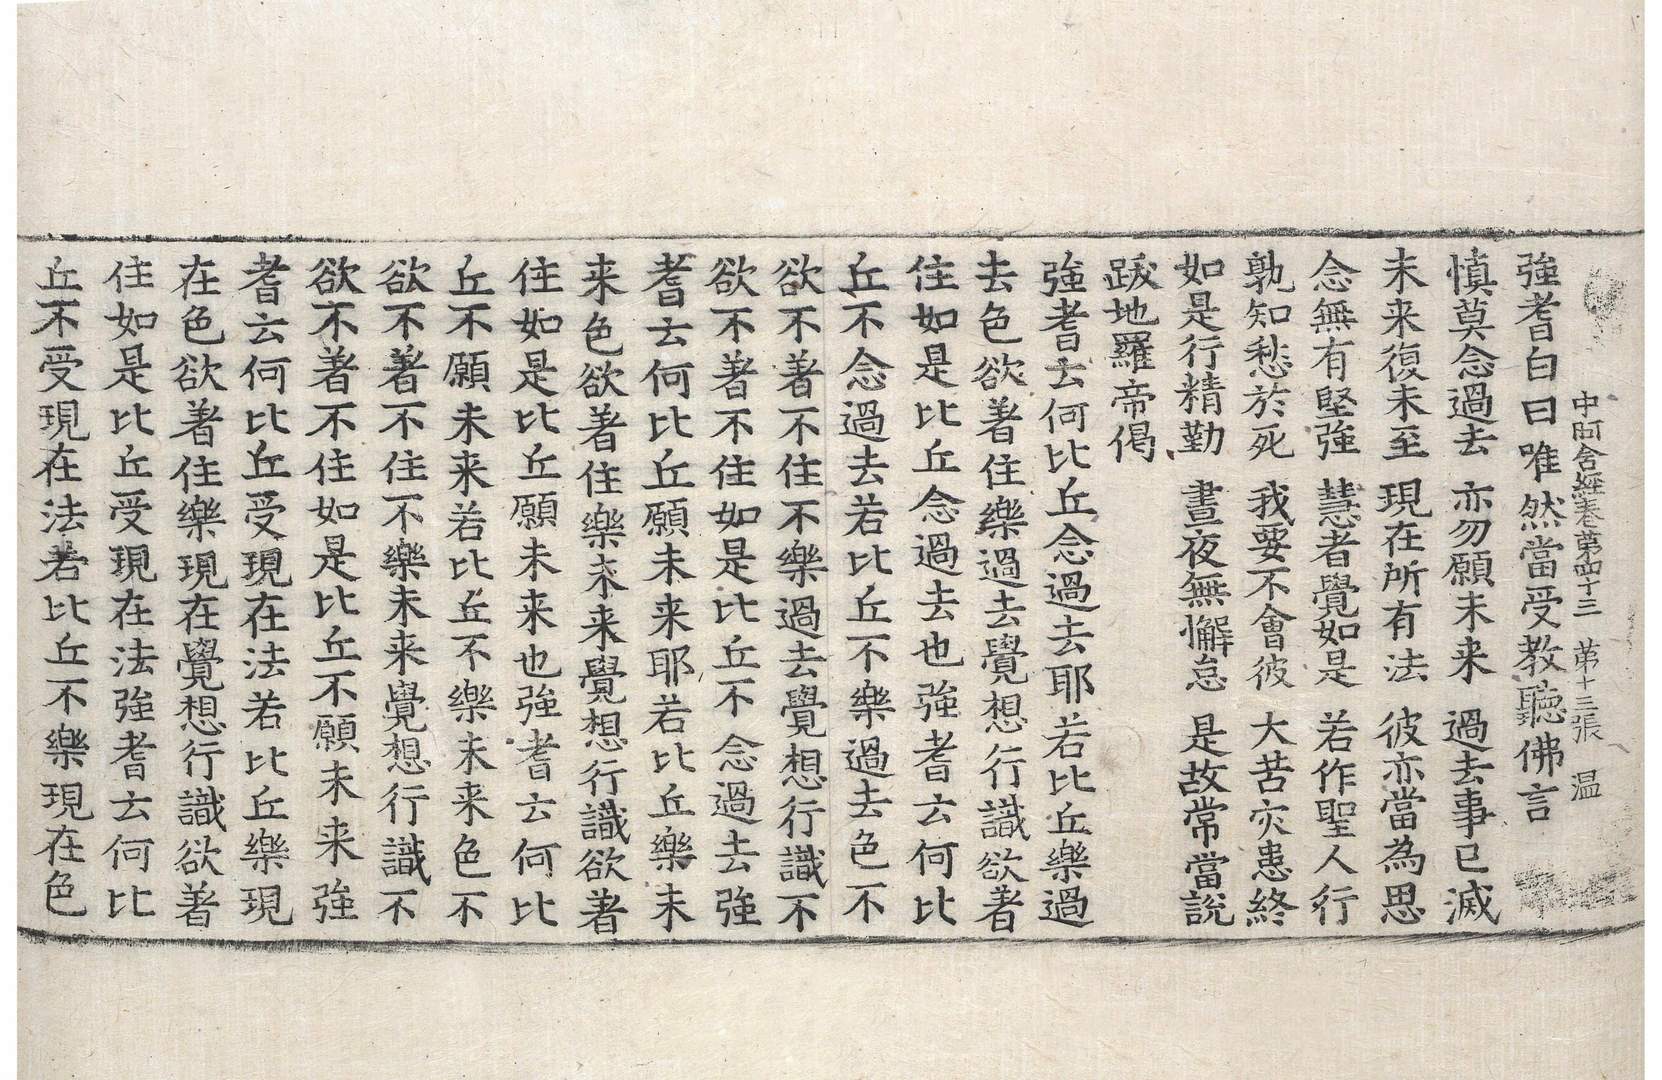 中阿含經卷第四十三　第十三張　温
強耆白曰唯然當受教聽佛言
慎莫念過去　亦勿願未来　過去事已滅
未来復未至　現在所有法　彼亦當為思
念無有堅強　慧者覺如是　若作聖人行
孰知愁於死　我要不會彼　大苦灾患終
如是行精勤　晝夜無懈怠　是故常當說
跋地羅帝偈
強耆云何比丘念過去耶若比丘樂過
去色欲著住樂過去覺想行識欲著
住如是比丘念過去也強耆云何比
丘不念過去若比丘不樂過去色不
欲不著不住不樂過去覺想行識不
欲不著不住如是比丘不念過去強
耆云何比丘願未来耶若比丘樂未
来色欲著住樂未来覺想行識欲著
住如是比丘願未来也強耆云何比
丘不願未来若比丘不樂未来色不
欲不著不住不樂未来覺想行識不
欲不著不住如是比丘不願未来強
耆云何比丘受現在法若比丘樂現
在色欲著住樂現在覺想行識欲著
住如是比丘受現在法強耆云何比
丘不受現在法若比丘不樂現在色